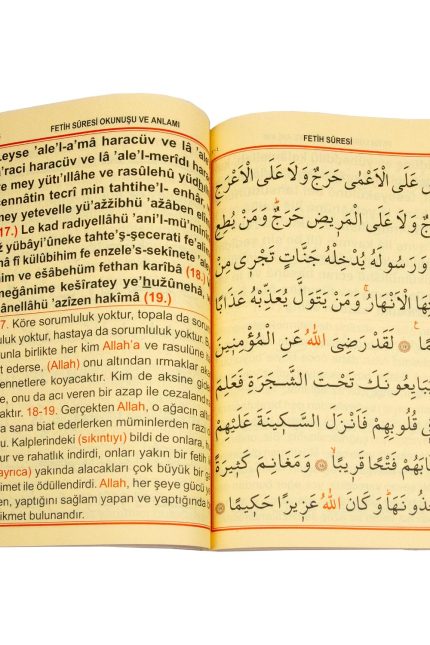 FETİH SÛRESİ OKUNUŞU VE ANLAMI
Leyse 'ale'l-a'mâ haracüv ve lâ 'ale'
a'raci haracüv ve lâ 'ale'l-merîdı har
ve mey yütı'ıllâhe ve rasûlehû yüdhı
cennâtin tecrî min tahtihe'l- enhâr,
mey yetevelle yü'ažžibhü 'ažâben elîn
(17.) Le kad radıyellâhü 'ani'l-mü'minî
ž yübâyi'ûneke tahte'ş-şecerati fe'alim
mâ fî kulûbihim fe enzele's-sekînete 'ale
him ve esâbehüm fethan karîbâ (18.)
meğânime keşîratey ye'huzûnehâ,
kânellâhü 'azîzen hakîmâ (19.)
7. Köre sorumluluk yoktur, topala da sorum
luluk yoktur, hastaya da sorumluluk yoktur. B
unla birlikte her kim Allah'a ve rasulüne ita
at ederse, (Allah) onu altından ırmaklar akan
cennetlere koyacaktır. Kim de aksine gide
rse, onu da acı veren bir azap ile cezalandı
racaktır. 18-19. Gerçekten Allah, o ağacın altı
nda sana biat ederlerken müminlerden razı o
lmuştur. Kalplerindeki (sıkıntıyı) bildi de onlara, h
uzur ve rahatlık indirdi, onları yakın bir fetih i
(ayrıca) yakında alacakları çok büyük bir ga
nimet ile ödüllendirdi. Allah, her şeye gücü ye
ten, yaptığını sağlam yapan ve yaptığında b
ir hikmet bulunandır.
FETİH SÛRESİ
لَيْسَ عَلَى الْاَعْمٰى حَرَجٌ وَلَا عَلَى الْاَعْرَجِ
حَرَجٌ وَلَا عَلَى الْمَرِيضِ حَرَجٌ وَمَنْ يُطِعِ
اللّٰهَ وَرَسُولَهُ يُدْخِلْهُ جَنَّاتٍ تَجْرِى مِنْ
تَحْتِهَا الْاَنْهَارُ وَمَنْ يَتَوَلَّ يُعَذِّبْهُ عَذَابًا
اَلِيمًا لَقَدْ رَضِىَ اللّٰهُ عَنِ الْمُؤْمِنِينَ
اِذْ يُبَايِعُونَكَ تَحْتَ الشَّجَرَةِ فَعَلِمَ
مَا فِى قُلُوبِهِمْ فَاَنْزَلَ السَّكِينَةَ عَلَيْهِمْ
وَاَثَابَهُمْ فَتْحًا قَرِيبًا ١٨ وَمَغَانِمَ كَثِيرَةً
يَاْخُذُونَهَا وَكَانَ اللّٰهُ عَزِيزًا حَكِيمًا ١٩